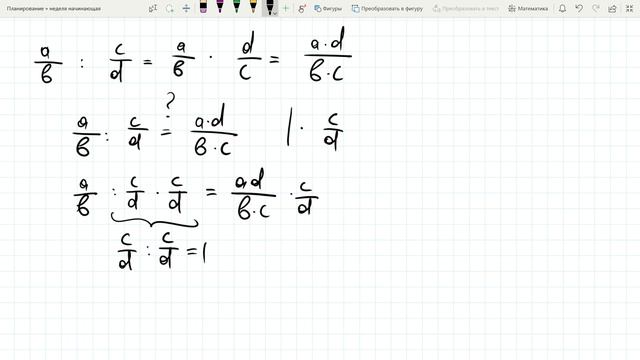 Планирование + неделя начинающая
Фигуры Преобразовать в фигуру Преобразовать в текст Математика
a/b : c/d = a/b · d/c = a·d/b·c
a/b : c/d =? a·d/b·c | · c/d
a/b : c/d · c/d = ad/b·c · c/d
c/d : c/d = 1